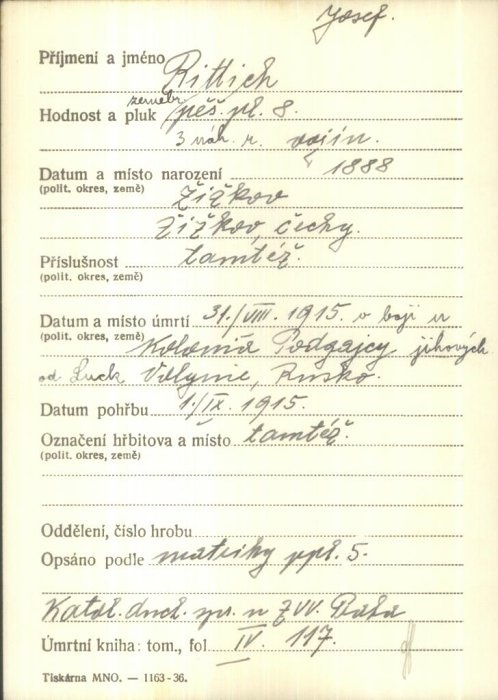 Josef.
Příjmení a jméno Rittich
zeměbr.
Hodnost a pluk pěš. pl. 8.
3 náh. r. vojín.
Datum a místo narození 1888
(polit. okres, země) Žižkov
Žižkov, čechy.
Příslušnost tamtéž.
(polit. okres, země)
Datum a místo úmrtí 31./VIII. 1915. v boji u
(polit. okres, země) Kolonia Podgajcy jihových.
od Luck Volynie, Rusko.
Datum pohřbu 1./IX. 1915.
Označení hřbitova a místo tamtéž.
(polit. okres, země)
Oddělení, číslo hrobu
Opsáno podle matriky ppl. 5.
Katol. duch. spr. u ZVV. Praha
Úmrtní kniha: tom., fol IV. 117.
Tiskárna MNO. — 1163-36.